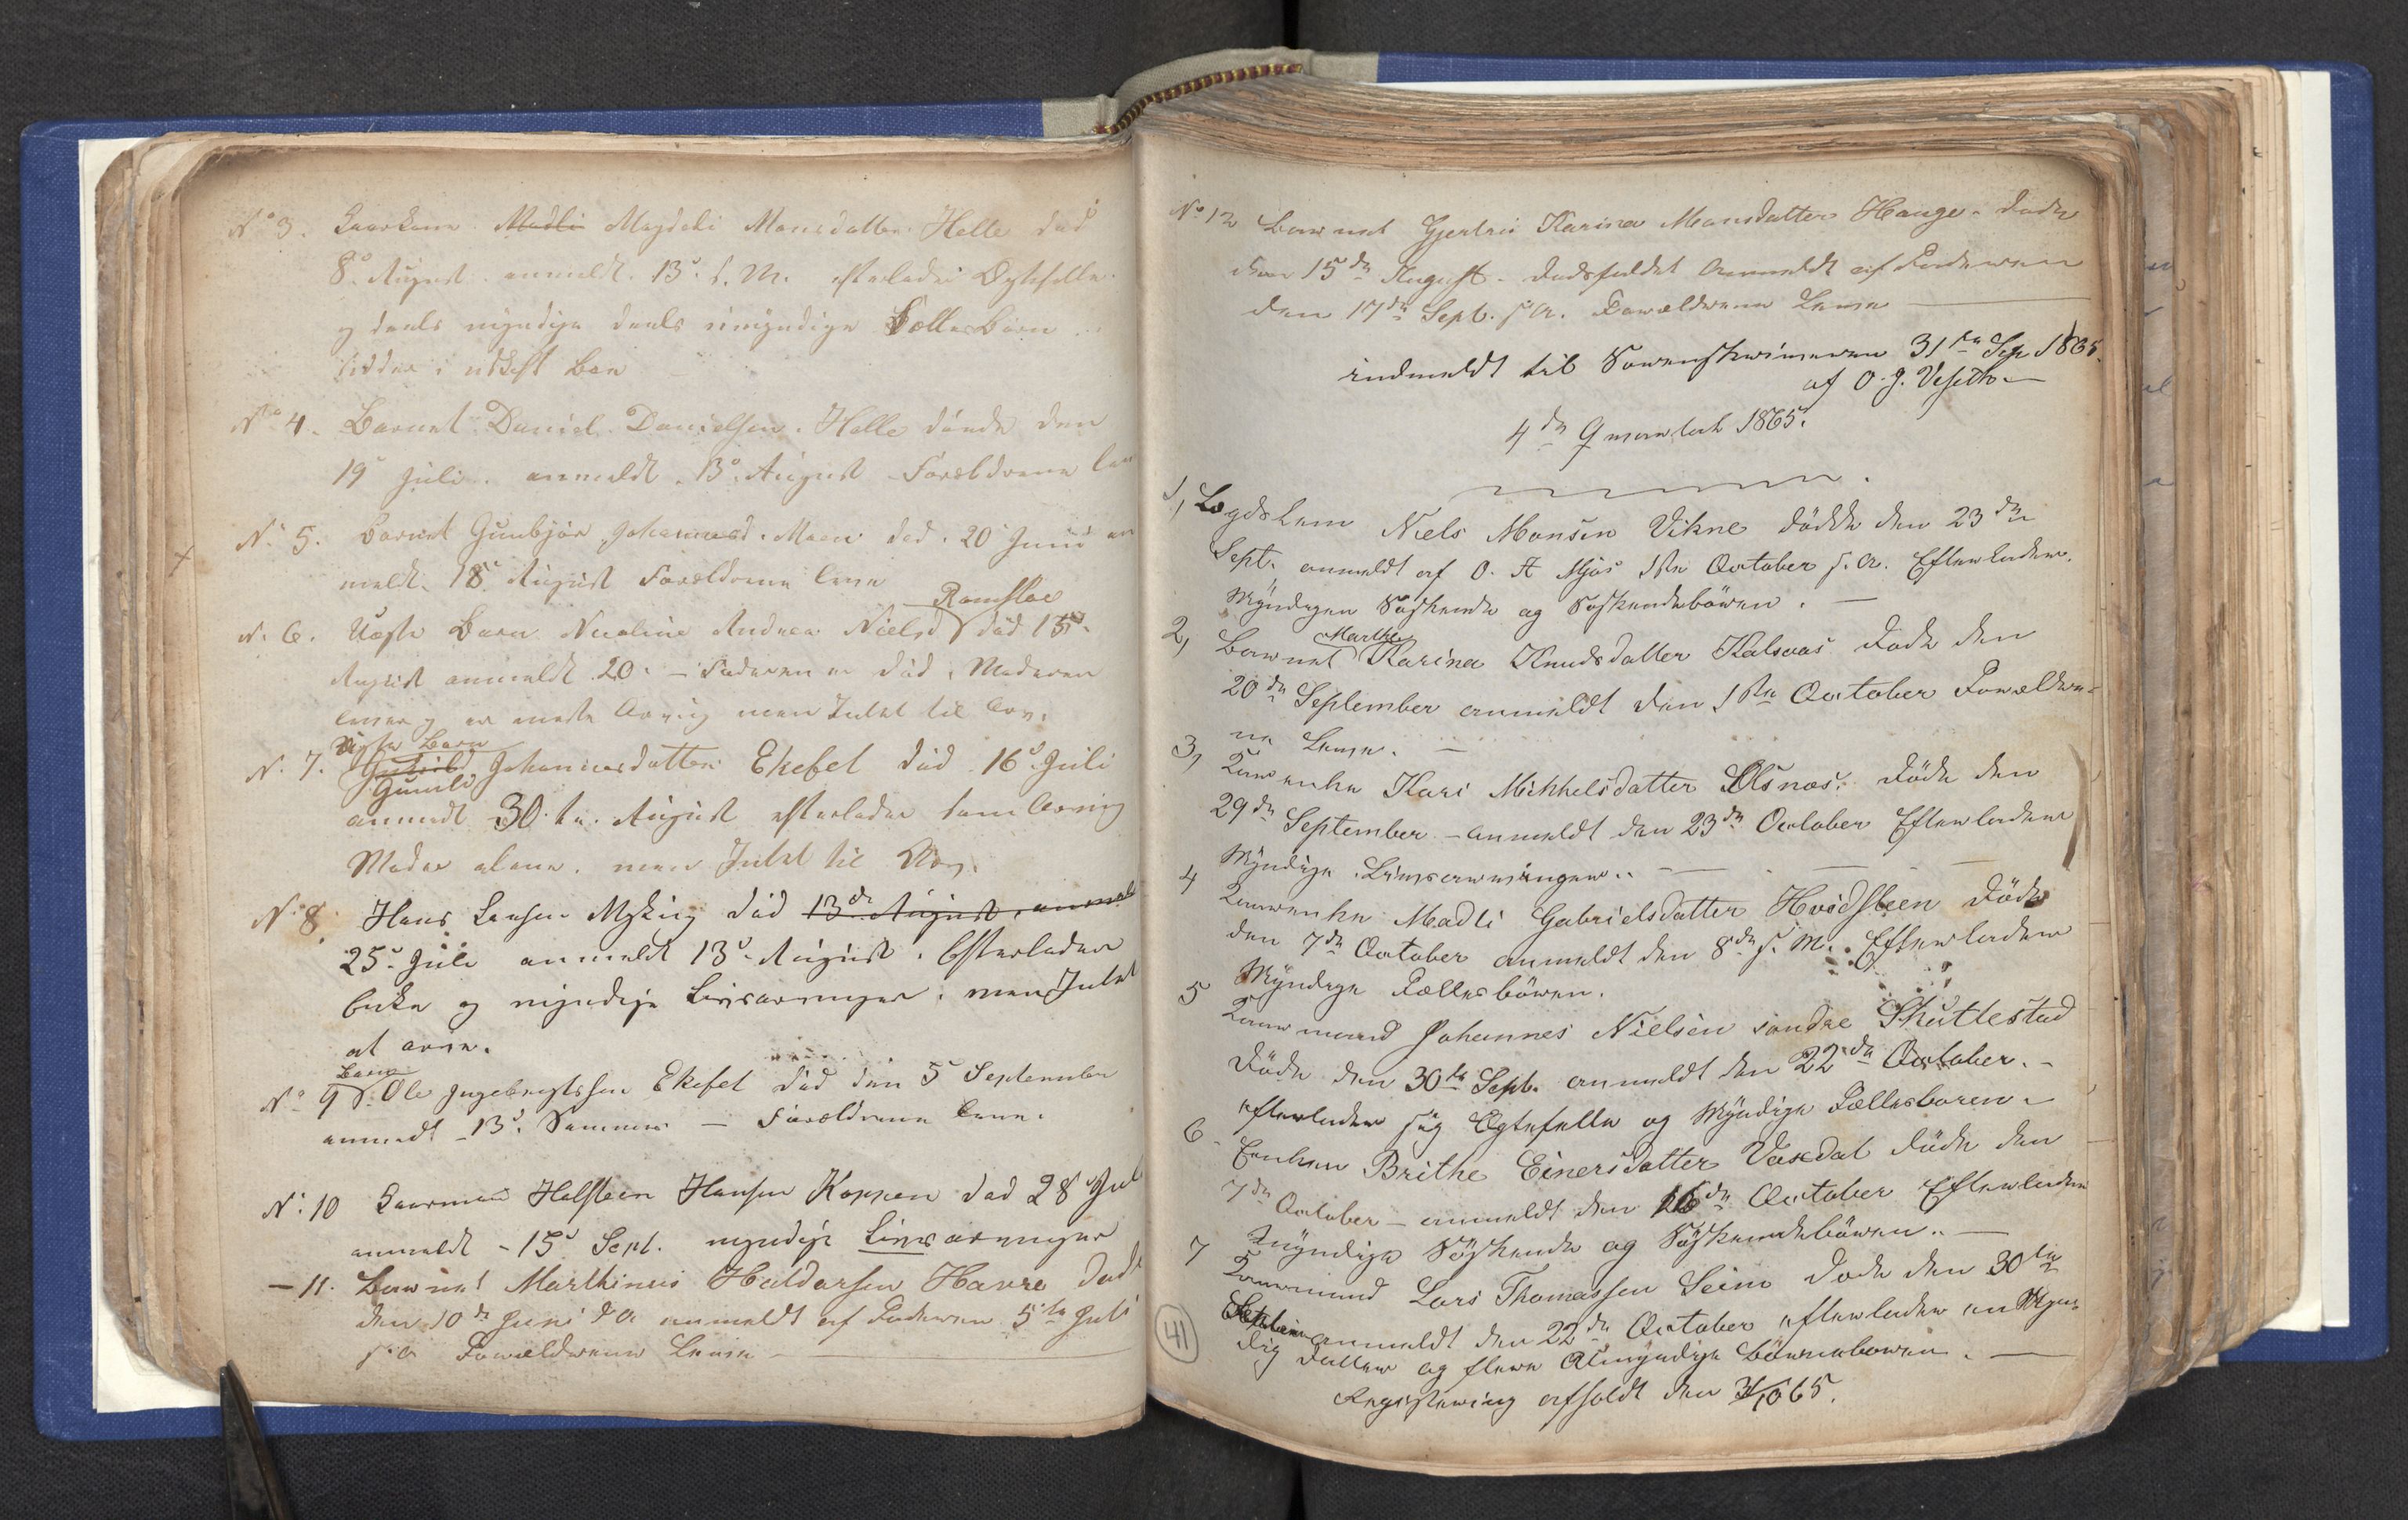 No 3. Kaarkone Madli Magdeli Monsdatter Helle død
8de August anmeldt 13de s. M. efterlader Ægtefelle
og deels myndige deels umyndige Fælles Børn
sidder i uskift Boe
No 4. Barnet Daniel Danielsen Helle døde den
19de Juli anmeldt 13de August Forældrene lev
No 5. Barnet Gunbjør Johannesd. Moen død 20 Juni an
meldt 18de August Forældrene leve
Ramsloe
No 6. Uægte Barn Nicoline Andrea Nielsd død 15de
August anmeldt 20de – Faderen er død, Moderen
lever og er eneste Arving men Intet til Arv.
Uægte Barn
No 7. Gunild Johannesdatter Ekefet død 16de Juli
Gunild
anmeldt 30te August efterlader som Arving
Moder alene, men Intet til Arv.
No 8 Hans Larsen Myking død 13de August, anmeldt
25de Juli anmeldt 13de August. Efterlader
Enke og myndige Livsarvinger, men Intet
at arve.
Barn
No 9 Ole Ingebregtsen Ekefet død den 5de September
anmeldt 13de Sammes – Forældrene leve.
No 10 Kaarmand Halsteen Hansen Koppen død 28de Jul
anmeldt – 15de Sept. myndige Livsarvinger
– 11. Barnet Marthinus Haldorsen Havre døde
den 10de Juni d. A. anmeldt af Faderen 5te Juli
s. A. Forældrene Leve –
No 12 Barnet Gjertrui Karina Monsdatter Hauge døde
den 15de August – dødsfaldet Anmeldt af Faderen
den 17de Sept. s. A. Forældrene Leve
indmeldt til Sorenskriveren 31te Sep 1865.
af O. J. Veseth –
4de Qvartal 1865.
1, Lægdslem Niels Monsen Vikne dødde den 23de
Sept. anmeldt af O. A. Mjøs 1ste October s. A. Efterlader
Myndigen Søskende og Søskendebøren. –
Marthe
2, Barnet Karina Knudsdatter Kalsaas døde den
20de September anmeldt den 1ste October Forældre-
ne Leve. –
3, Kaarenke Kari MikkelsdatterØlsnæs. døde den
29de September – anmeldt den 23de October Efterlader
Myndige Livsarvinger. –
4 Kaarenke Madli Gabrielsdatter Hvidsteen døde
den 7de October anmeldt den 8de s. M. Efterlader
Myndige Fællesbøren.
5 Kaarmand Johannes Nielsen søndre Skuttestad
døde den 30te Sept. anmeldt den 22de October. –
efterlader sig Ægtefelle og Myndige Fællesboren –
6 – Enken Brithe Einersdatter Vaxdal døde den
7de October – anmeldt den 16de October Efterlader
Myndige Søskende og Søskendebøren. –
7 Kaarmand Lars Thomassen Seim døde den 30te
September anmeldt den 22de October efterlader en Myn-
dig datter og flere Umyndige Børnebøren. –
Registrering afholdt den 31/10 65.
41